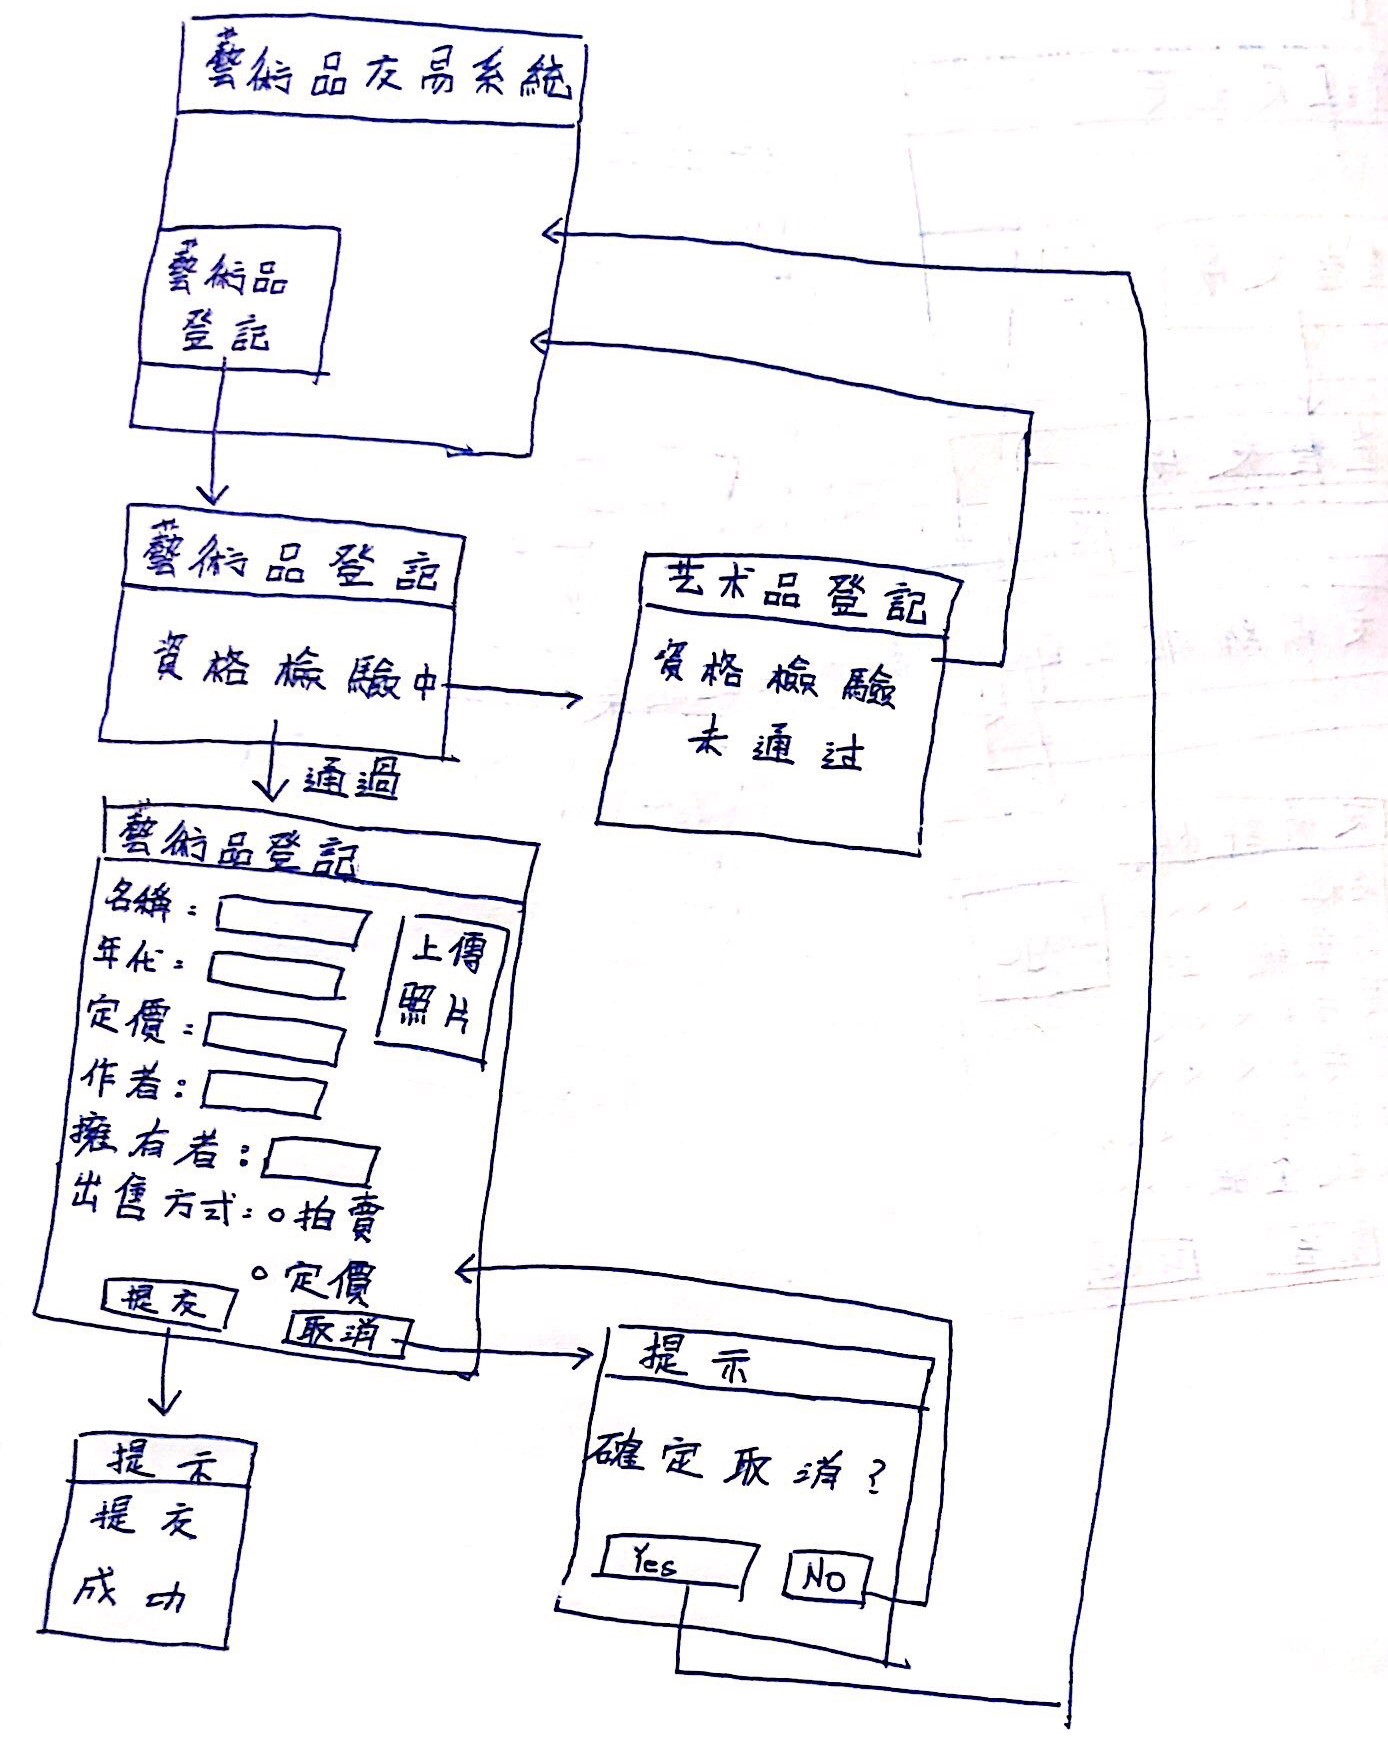 藝術品交易系統
藝術品
登記
藝術品登記
資格檢驗中
艺术品登記
資格檢驗
未通过
通過
藝術品登記
名稱：
年代：
定價：
作者：
擁有者：
出售方式：○拍賣
○定價
上傳
照片
提交
取消
提示
提交
成功
提示
確定取消？
Yes
NO